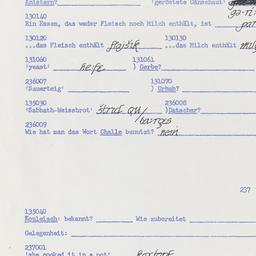 Anistern?
'geröstete Gänschaut'
131040
Ein Essen, das weder Fleisch noch Milch enthält, ist
130120 130130
...das Fleisch enthält flajšik ...das Milch enthält
131060 131061
'yeast' hefe ) Gerbe?
236007 131070
'Sauerteig' ) Urhab?
135030 236008
'Sabbath-Weissbrot' štricl )Datscher?
236009
Wie hat man das Wort Challe benutzt? nein
237
135040
Kouleisch: bekannt? Wie zubereitet
Gelegenheit:
237001
'she cooked it in a pot'